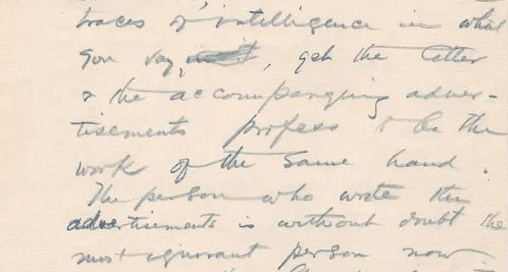 traces of intelligence in what
you say, , yet the letter
& the accompanying adver-
tisements profess to be the
work of the same hand.
The person who wrote the
advertisements is without doubt the
most ignorant person now